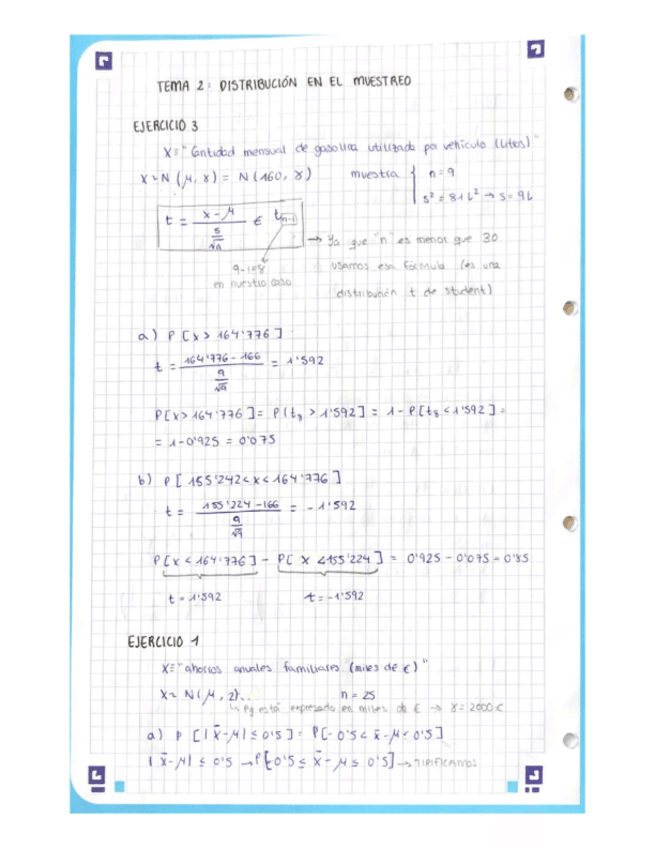 TEMA 2: DISTRIBUCIÓN EN EL MUESTREO
EJERCICIO 3
X≡"Cantidad mensual de gasolina utilizada por vehículo (litros)"
X≈N (μ, γ) = N (160, γ) muestra { n=9
s² = 81 L² → s = 9L
t = x-μ / s/√n ∈ t n-1
→ Ya que "n" es menor que 30
9-1=8 usamos esa fórmula (es una
en nuestro caso distribución t de Student)
a) P [x > 164'776]
t = 164'776 - 166 / 9/√9 = 1'592
P[x > 164'776] = P[t₈ > 1'592] = 1 - P[t₈ < 1'592] =
= 1-0'925 = 0'075
b) P [155'242 < x < 164'776]
t = 155'224 - 166 / 9/√9 = - 1'592
P[x < 164'776] - P[ x < 155'224 ] = 0'925 - 0'075 = 0'85
t = 1'592 t = -1'592
EJERCICIO 1
X≡"ahorros anuales familiares (miles de €)"
X≈ N(μ, 2)... n = 25
↳ Pq está expresado en miles de € → γ = 2000 €
a) P [|x̄-μ| ≤ 0'5] = P[-0'5 < x̄-μ < 0'5]
|x̄-μ| ≤ 0.5 → P[-0'5 ≤ x̄-μ ≤ 0'5] → TIPIFICAMOS